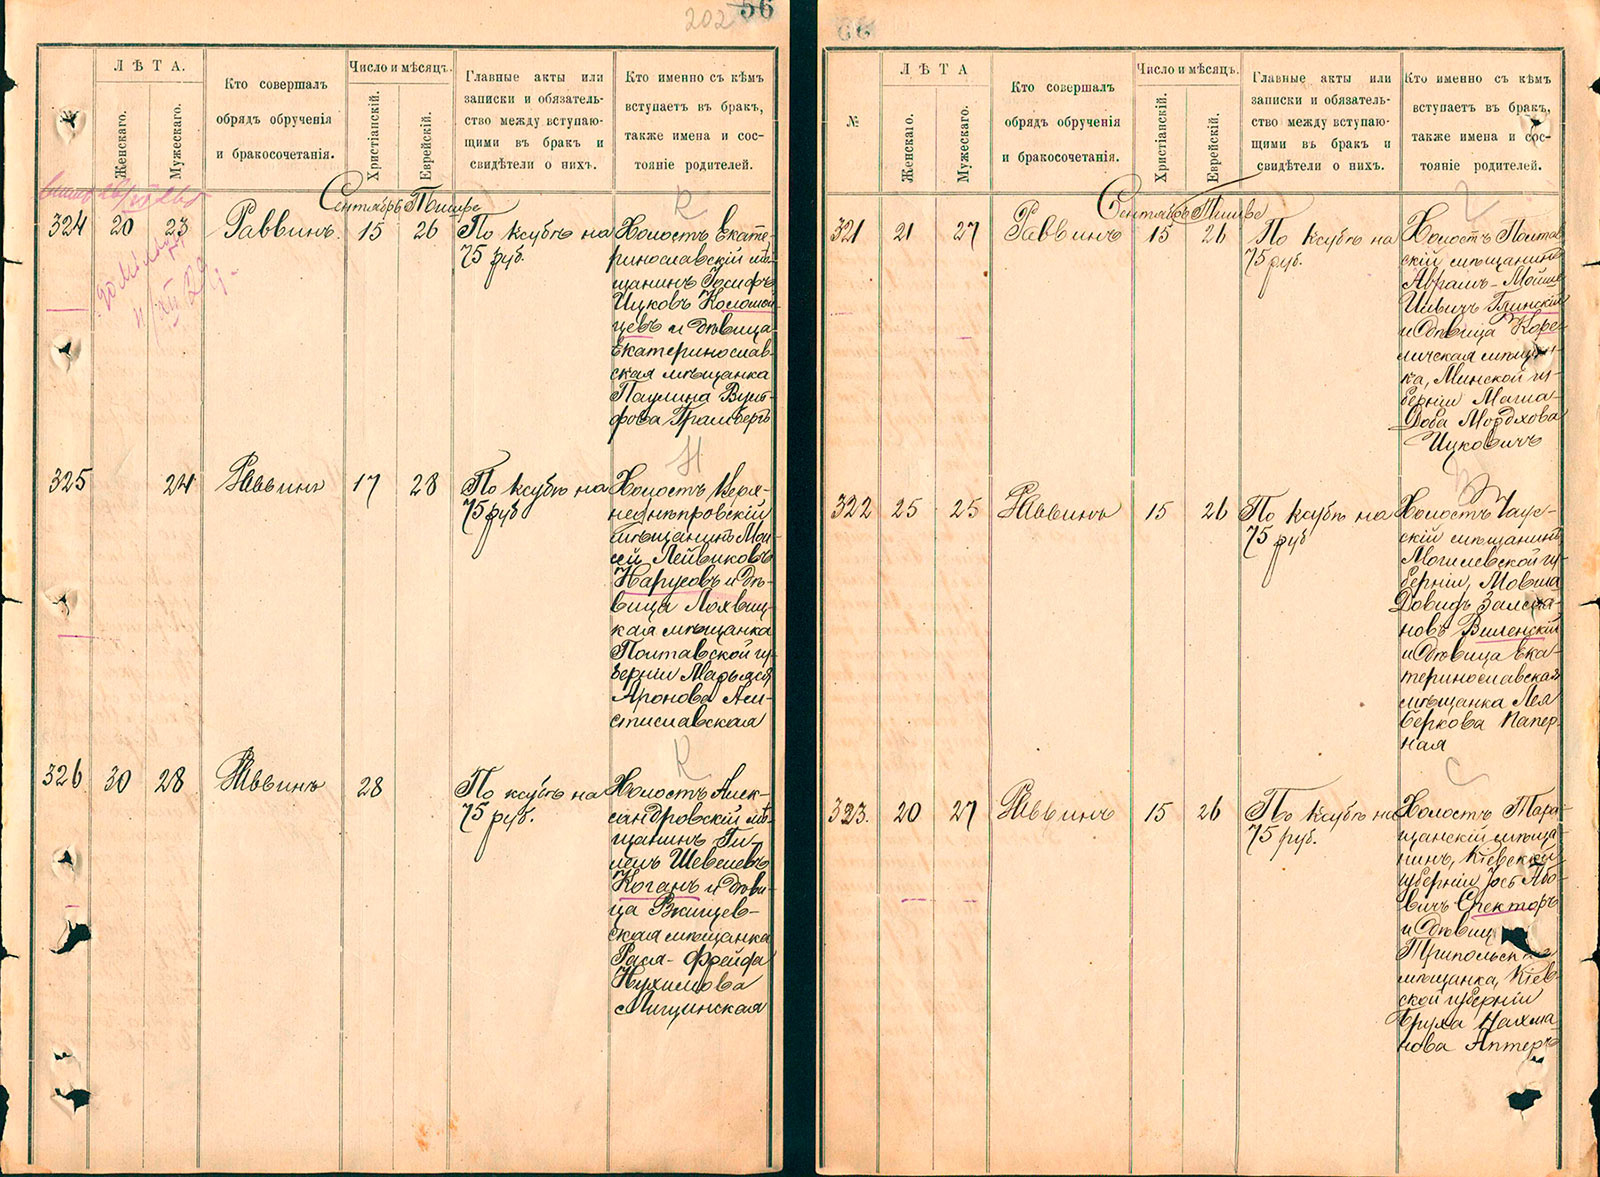 202 56
ЛѢТА.
Женскаго.
Мужескаго.
Кто совершалъ
обрядъ обрученія
и бракосочетанія.
Число и мѣсяцъ.
Христіанскій.
Еврейскій.
Главные акты или
записки и обязатель-
ство между вступаю-
щими въ бракъ и
свидѣтели о нихъ.
Кто именно съ кѣмъ
вступаетъ въ бракъ,
также имена и сос-
тояніе родителей.
Сентябрь Тишре
К
324 20 23 Раввинъ. 15 26
По ксубѣ на
75 руб.
Холостъ Екате-
ринославскій мѣ-
щанинъ Іосифъ
Ицковъ Коломой-
цевъ и дѣвица
Екатеринослав-
ская мѣщанка
Паулина Вуль-
фова Грамбергъ
Н
325 24 Раввинъ 17 28
По ксубѣ на
75 руб
Холостъ Верх-
неднѣпровскій
мѣщанинъ Мои-
сей Лейвиковъ
Нарусовъ и дѣ-
вица Лохвиц-
кая мѣщанка
Полтавской гу-
берніи Марьяся
Аронова Ами-
стиславская
К
326 30 28 Раввинъ 28
По ксубѣ на
75 руб.
Холостъ Алек-
сандровскій мѣ-
щанинъ Ги-
лель Шевелевъ
Коганъ и дѣви-
ца Ржищев-
ская мѣщанка
Рася-Фрейда
Нухимова
Лищинская
66
№
ЛѢТА
Женскаго.
Мужескаго.
Кто совершалъ
обрядъ обрученія
и бракосочетанія.
Число и мѣсяцъ.
Христіанскій.
Еврейскій.
Главные акты или
записки и обязатель-
ство между вступаю-
щими въ бракъ и
свидѣтели о нихъ.
Кто именно съ кѣмъ
вступаетъ въ бракъ,
также имена и сос-
тояніе родителей.
Сентябрь Тишре
Г
321 21 27 Раввинъ 15 26
По ксубѣ на
75 руб.
Холостъ Полтав-
скій мѣщанинъ
Аврамъ-Мойше
Илевичъ Глинскій
и дѣвица Коре-
личская мѣщан-
ка, Минской гу-
берніи Маша-
Доба Мордхова
Ицковичъ
В
322 25 25 Раввинъ 15 26
По ксубѣ на
75 руб
Холостъ Чаус-
скій мѣщанинъ
Могилевской гу-
берніи, Мовша
Довидъ Залма-
новъ Виленскій
и дѣвица Ека-
теринославская
мѣщанка Лея
Беркова Папер-
ная
С
323. 20 27 Раввинъ 15 26
По ксубѣ на
75 руб.
Холостъ Тара-
щанскій мѣща-
нинъ, Кіевской
губерніи Іось Або-
вичъ Спекторъ
и дѣвица
Трипольская
мѣщанка, Кіев-
ской губерніи
Бруха Нахма-
нова Аптеръ